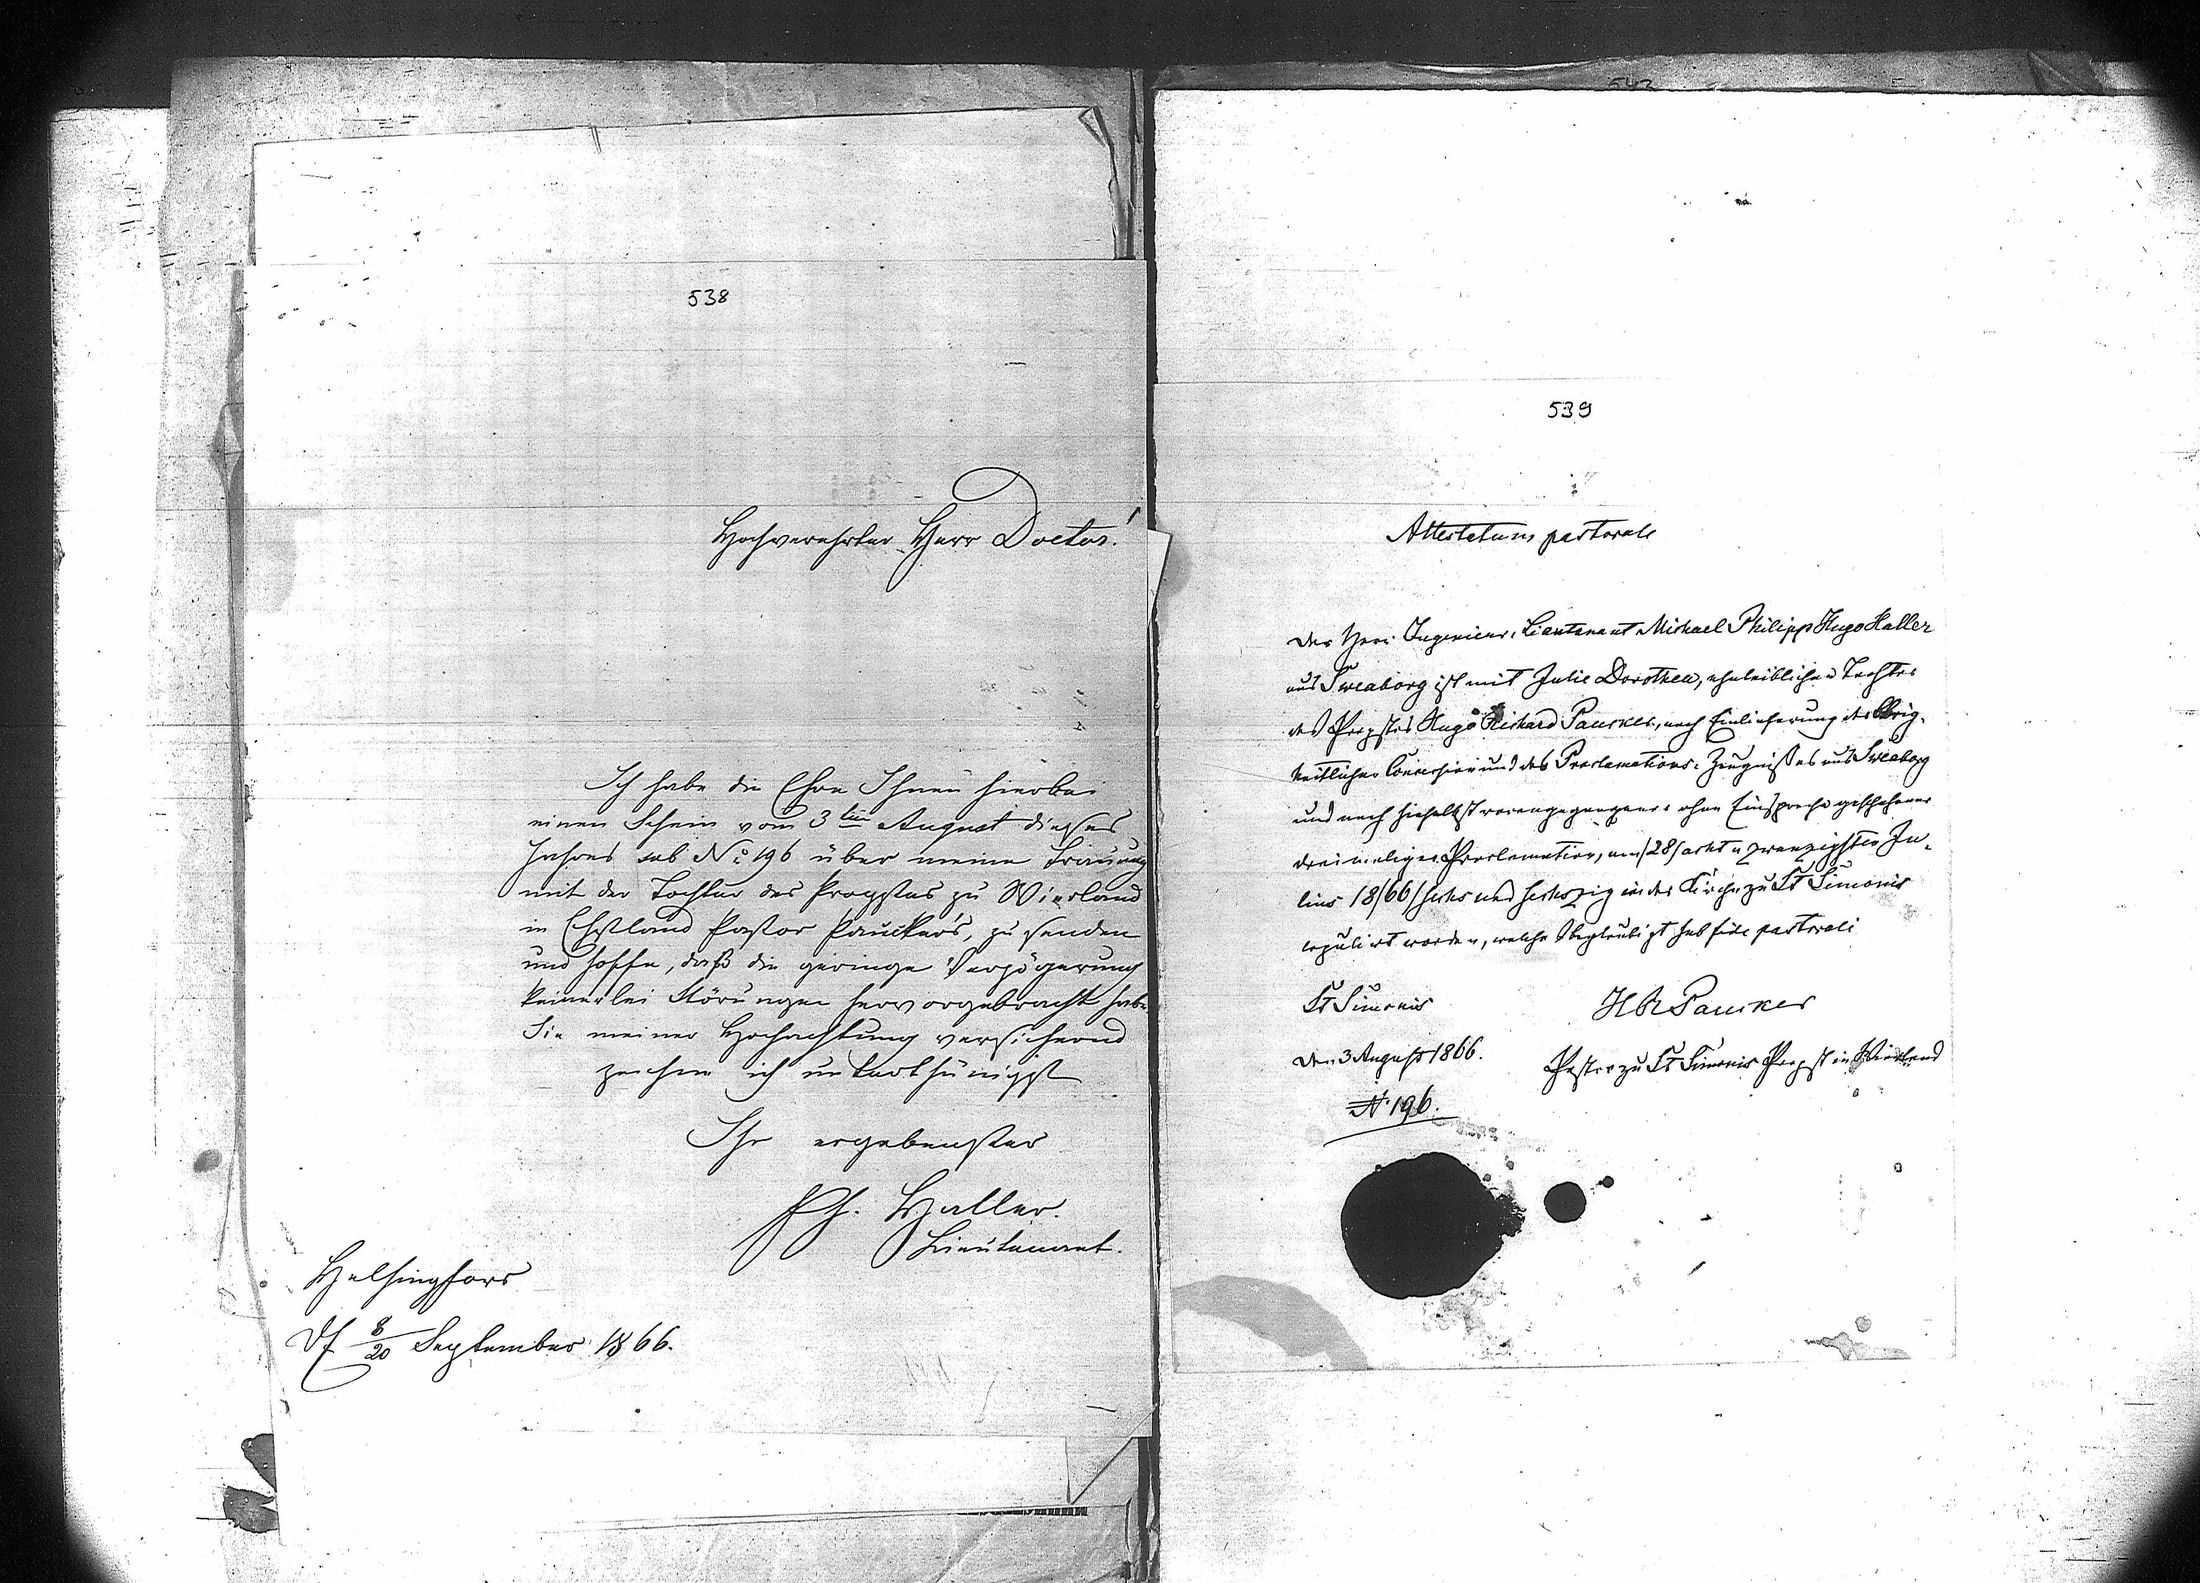 538
Hochverehrter Herr Doctor!
Ich habe die Ehre Ihnen hierbei
einen Schein vom 3ten August dieses
Jahres sub No 196 über meine Trauung
mit der Tochter des Propstes zu Wierland
in Ehstland Pastor Paucker's, zu senden
und hoffe, daß die geringe Verzögerung
keinerlei Störungen hervorgebracht habe
Sie meiner Hochachtung versichernd
zeichne ich unterthänigst
Ihr ergebenster
Ph. Haller.
Lieutenant.
Helsingfors
8/20 September 1866.
539
Attestatum pastorale
Der Herr Ingenieur-Lieutenant Michael Philipp Hugo Haller
aus Sweaborg ist mit Julie Dorothea, eheleiblichen Tochter
des Propstes Hugo Richard Paucker, nach Einlieferung der Obrig-
keitlichen Concession und des Proclamations-Zeugnisses aus Sweaborg
und nach hieselbst vorangegangener ohne Einsprache geschehener
dreimaliger Proclamation, am /28/ acht u zwanzigsten Ju-
lius 18/66/ sechs und sechszig in der Kirche zu St Simonis
copulirt worden, welches beglaubigt hat fide pastorali
St Simonis
H R Paucker
den 3 August 1866.
Pastor zu St Simonis Propst in Wierland
No 196.